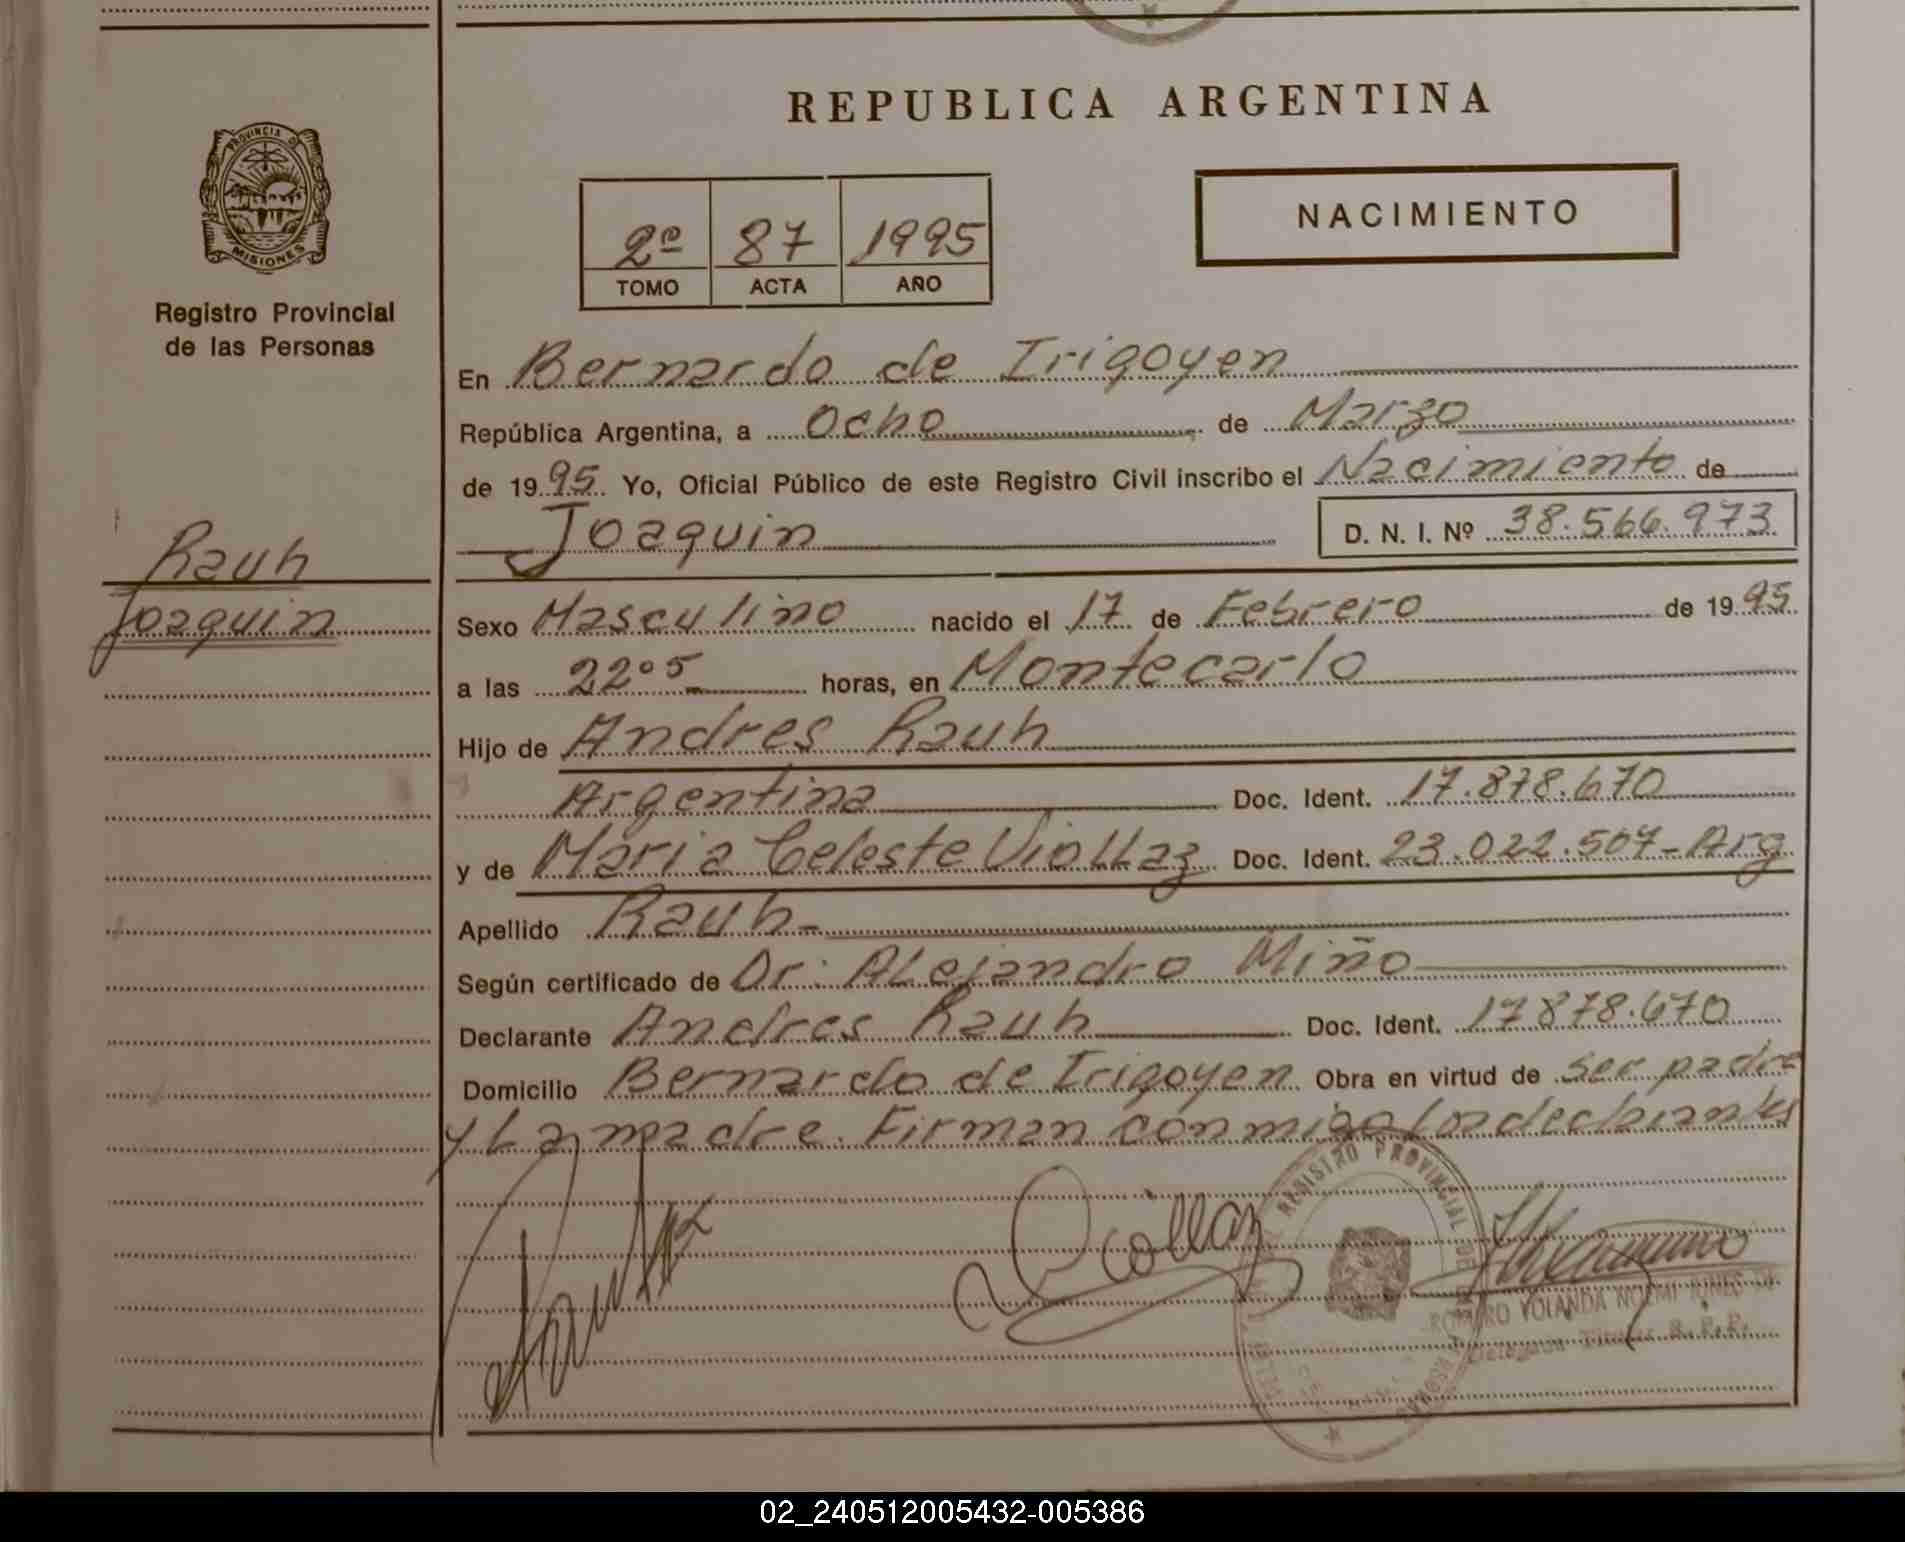 REPUBLICA ARGENTINA
PROVINCIA D
MISIONES
Registro Provincial
de las Personas
2º 87 1995
TOMO ACTA AÑO
NACIMIENTO
En Bernardo de Irigoyen
República Argentina, a Ocho de Marzo
de 1995 Yo, Oficial Público de este Registro Civil inscribo el Nacimiento de
Joaquin D. N. I. Nº 38.566.973
Rauh
Joaquin
Sexo Masculino nacido el 17 de Febrero de 1995
a las 22º5 horas, en Montecarlo
Hijo de Andres Rauh
Argentina Doc. Ident. 17.878.670
y de Maria Celeste Viollaz Doc. Ident. 23.022.507-Arg
Apellido Rauh
Según certificado de Dr: ALejandro Miño
Declarante Andres Rauh Doc. Ident. 17878.670
Domicilio Bernardo de Irigoyen Obra en virtud de ser padre
y La madre. Firman conmigo los declarantes
Viollaz
REGISTRO PROVINCIAL DE
ROMERO YOLANDA NOEMI JONES DE
Delegada Titular R. P. P.
02_240512005432-005386